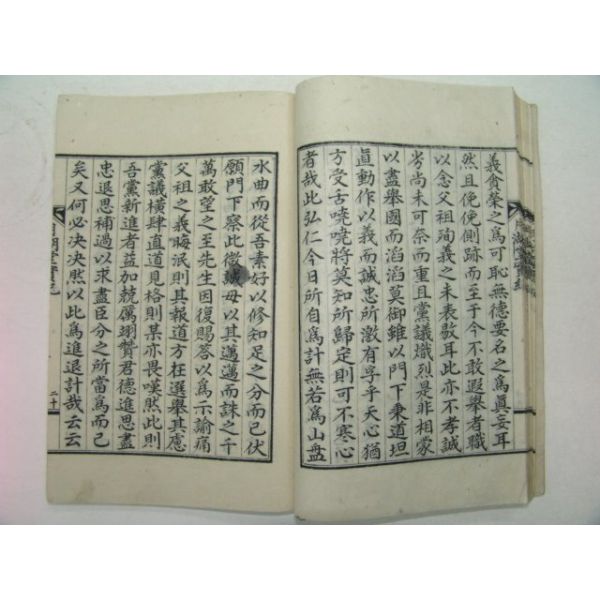 義貪榮之爲可恥無德要名之爲眞妄耳
然且俛俛側跡而至于今不敢遐擧者職
以念父祖殉義之未表敭耳此亦不孝誠
劣尚未可奈而重且黨議熾烈是非相蒙
以盡擧國而滔滔莫御雖以門下秉道坦
直動作以義而誠忠所激有孚乎天心猶
方受古嘵嘵將莫知所歸定則可不寒心
者哉此弘仁今日所自爲計無若爲山盤
水曲而從吾素好以修知足之分而已伏
願門下察此微誠毋以其邁邁而誅之千
萬敢望之至先生因復賜答以爲示諭痛
父祖之義晦泯則其報道方在選擧其慮
黨議橫肆直道見格則某亦畏嘆然此則
吾黨新進者益加兢厲翊贊君德進思盡
忠退思補過以求盡臣分之所當爲而已
矣又何必决决然以此爲進退計哉云云
二十